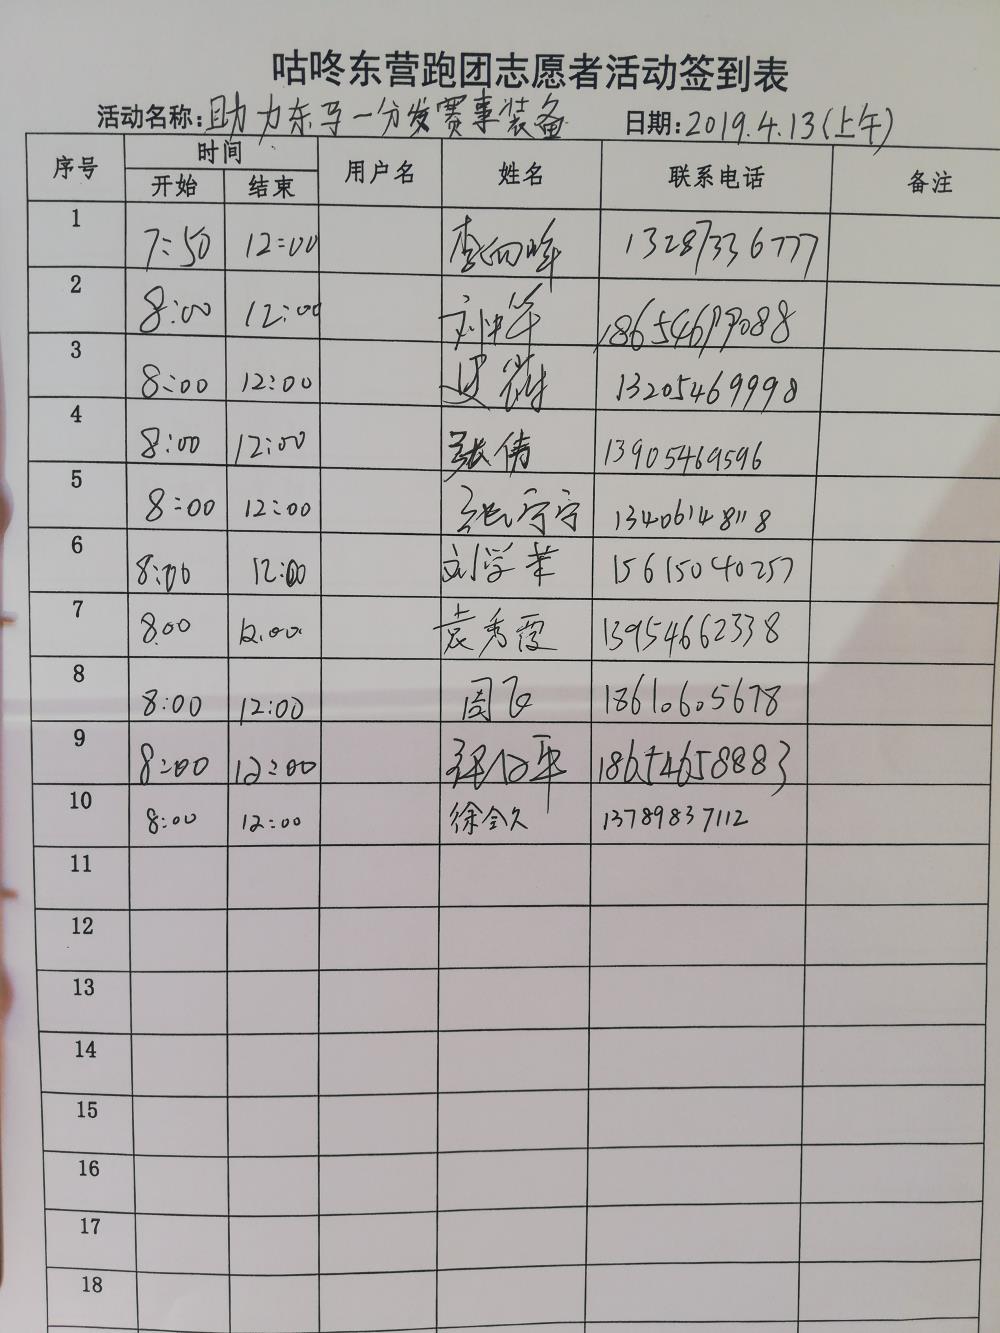 咕咚东营跑团志愿者活动签到表
活动名称:助力东马一分发赛事装备 日期:2019.4.13(上午)
序号 时间 用户名 姓名 联系电话 备注
开始 结束
1 7:50 12:00 13287336777
2 8:00 12:00 刘中华 18654699088
3 8:00 12:00 13205469998
4 8:00 12:00 张伟 13905469596
5 8:00 12:00 张宁宁 13406148118
6 8:00 12:00 刘学苹 15615040257
7 8:00 12:00 袁秀霞 13954662338
8 8:00 12:00 周飞 18610605678
9 8:00 12:00 18654658883
10 8:00 12:00 徐全久 13789837112
11
12
13
14
15
16
17
18